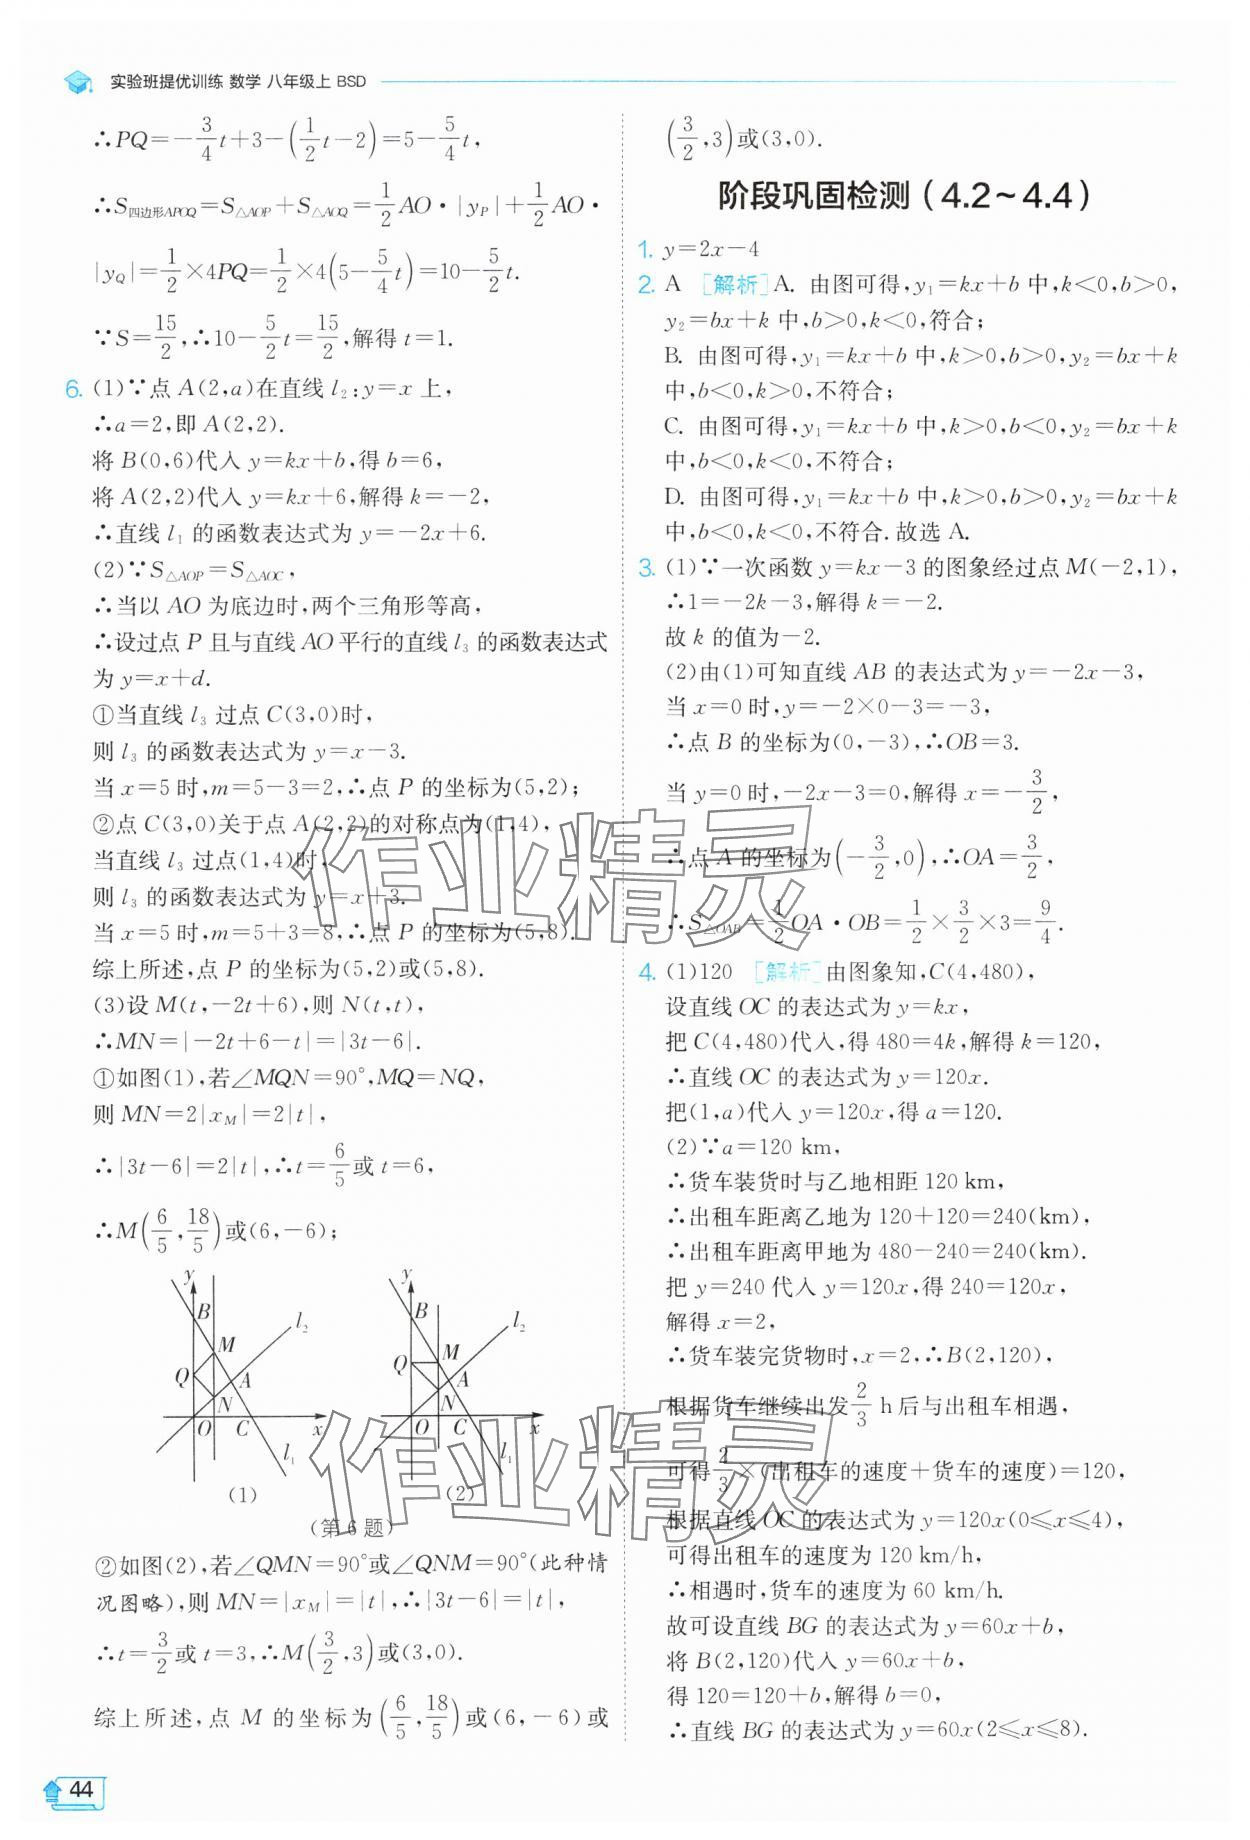 实验班提优训练 数学 八年级上 BSD
∴PQ=-3/4t+3-(1/2t-2)=5-5/4t,
∴S四边形APOQ=S△AOP+S△AOQ=1/2AO·|yP|+1/2AO·
|yQ|=1/2×4PQ=1/2×4(5-5/4t)=10-5/2t.
∵S=15/2,∴10-5/2t=15/2,解得t=1.
6. (1)∵点A(2,a)在直线l₂:y=x上,
∴a=2,即A(2,2).
将B(0,6)代入y=kx+b,得b=6,
将A(2,2)代入y=kx+6,解得k=-2,
∴直线l₁的函数表达式为y=-2x+6.
(2)∵S△AOP=S△AOC,
∴当以AO为底边时,两个三角形等高,
∴设过点P且与直线AO平行的直线l₃的函数表达式
为y=x+d.
①当直线l₃过点C(3,0)时,
则l₃的函数表达式为y=x-3.
当x=5时,m=5-3=2,∴点P的坐标为(5,2);
②点C(3,0)关于点A(2,2)的对称点为(1,4),
当直线l₃过点(1,4)时,
则l₃的函数表达式为y=x+3.
当x=5时,m=5+3=8,∴点P的坐标为(5,8).
综上所述,点P的坐标为(5,2)或(5,8).
(3)设M(t,-2t+6),则N(t,t),
∴MN=|-2t+6-t|=|3t-6|.
①如图(1),若∠MQN=90°,MQ=NQ,
则MN=2|xM|=2|t|,
∴|3t-6|=2|t|,∴t=6/5或t=6,
∴M(6/5,18/5)或(6,-6);
y B M l₂ Q A N O C x l₁
(1)
y B l₂ Q M A N O C x l₁
(2)
(第6题)
②如图(2),若∠QMN=90°或∠QNM=90°(此种情
况图略),则MN=|xM|=|t|,∴|3t-6|=|t|,
∴t=3/2或t=3,∴M(3/2,3)或(3,0).
综上所述,点M的坐标为(6/5,18/5)或(6,-6)或
44
(3/2,3)或(3,0).
阶段巩固检测(4.2~4.4)
1. y=2x-4
2. A [解析]A. 由图可得,y₁=kx+b中,k<0,b>0,
y₂=bx+k中,b>0,k<0,符合;
B. 由图可得,y₁=kx+b中,k>0,b>0,y₂=bx+k
中,b<0,k>0,不符合;
C. 由图可得,y₁=kx+b中,k>0,b<0,y₂=bx+k
中,b<0,k<0,不符合;
D. 由图可得,y₁=kx+b中,k>0,b>0,y₂=bx+k
中,b<0,k<0,不符合.故选A.
3. (1)∵一次函数y=kx-3的图象经过点M(-2,1),
∴1=-2k-3,解得k=-2.
故k的值为-2.
(2)由(1)可知直线AB的表达式为y=-2x-3,
当x=0时,y=-2×0-3=-3,
∴点B的坐标为(0,-3),∴OB=3.
当y=0时,-2x-3=0,解得x=-3/2,
∴点A的坐标为(-3/2,0),∴OA=3/2,
∴S△OAB=1/2OA·OB=1/2×3/2×3=9/4.
4. (1)120 [解析]由图象知,C(4,480),
设直线OC的表达式为y=kx,
把C(4,480)代入,得480=4k,解得k=120,
∴直线OC的表达式为y=120x.
把(1,a)代入y=120x,得a=120.
(2)∵a=120 km,
∴货车装货时与乙地相距120 km,
∴出租车距离乙地为120+120=240(km),
∴出租车距离甲地为480-240=240(km).
把y=240代入y=120x,得240=120x,
解得x=2,
∴货车装完货物时,x=2,∴B(2,120),
根据货车继续出发2/3 h后与出租车相遇,
可得2/3×(出租车的速度+货车的速度)=120,
根据直线OC的表达式为y=120x(0⩽x⩽4),
可得出租车的速度为120 km/h,
∴相遇时,货车的速度为60 km/h.
故可设直线BG的表达式为y=60x+b,
将B(2,120)代入y=60x+b,
得120=120+b,解得b=0,
∴直线BG的表达式为y=60x(2⩽x⩽8).
作业精灵
作业精灵